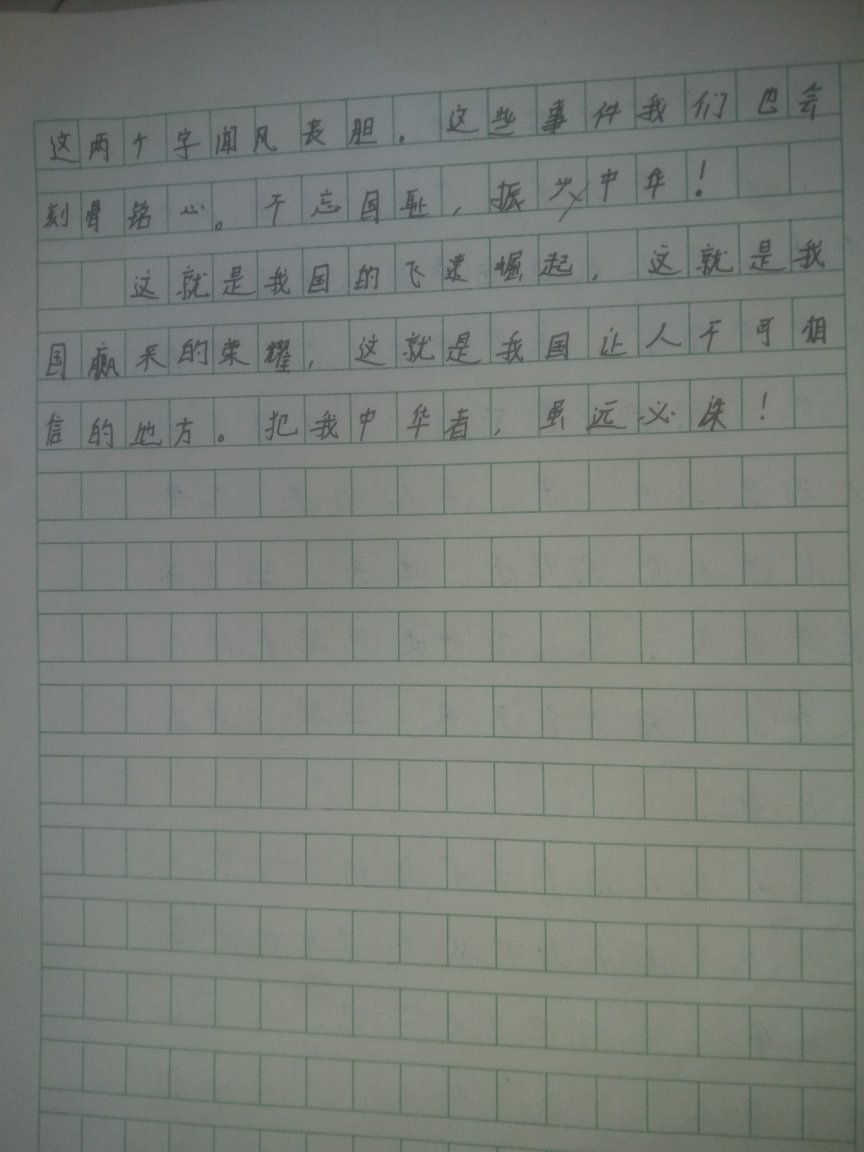 这两个字闻风丧胆．这些事件我们也会
刻骨铭心。不忘国耻，振兴中华！
这就是我国的飞速崛起，这就是我
国赢来的荣耀，这就是我国让人不可相
信的地方。犯我中华者，虽远必诛！